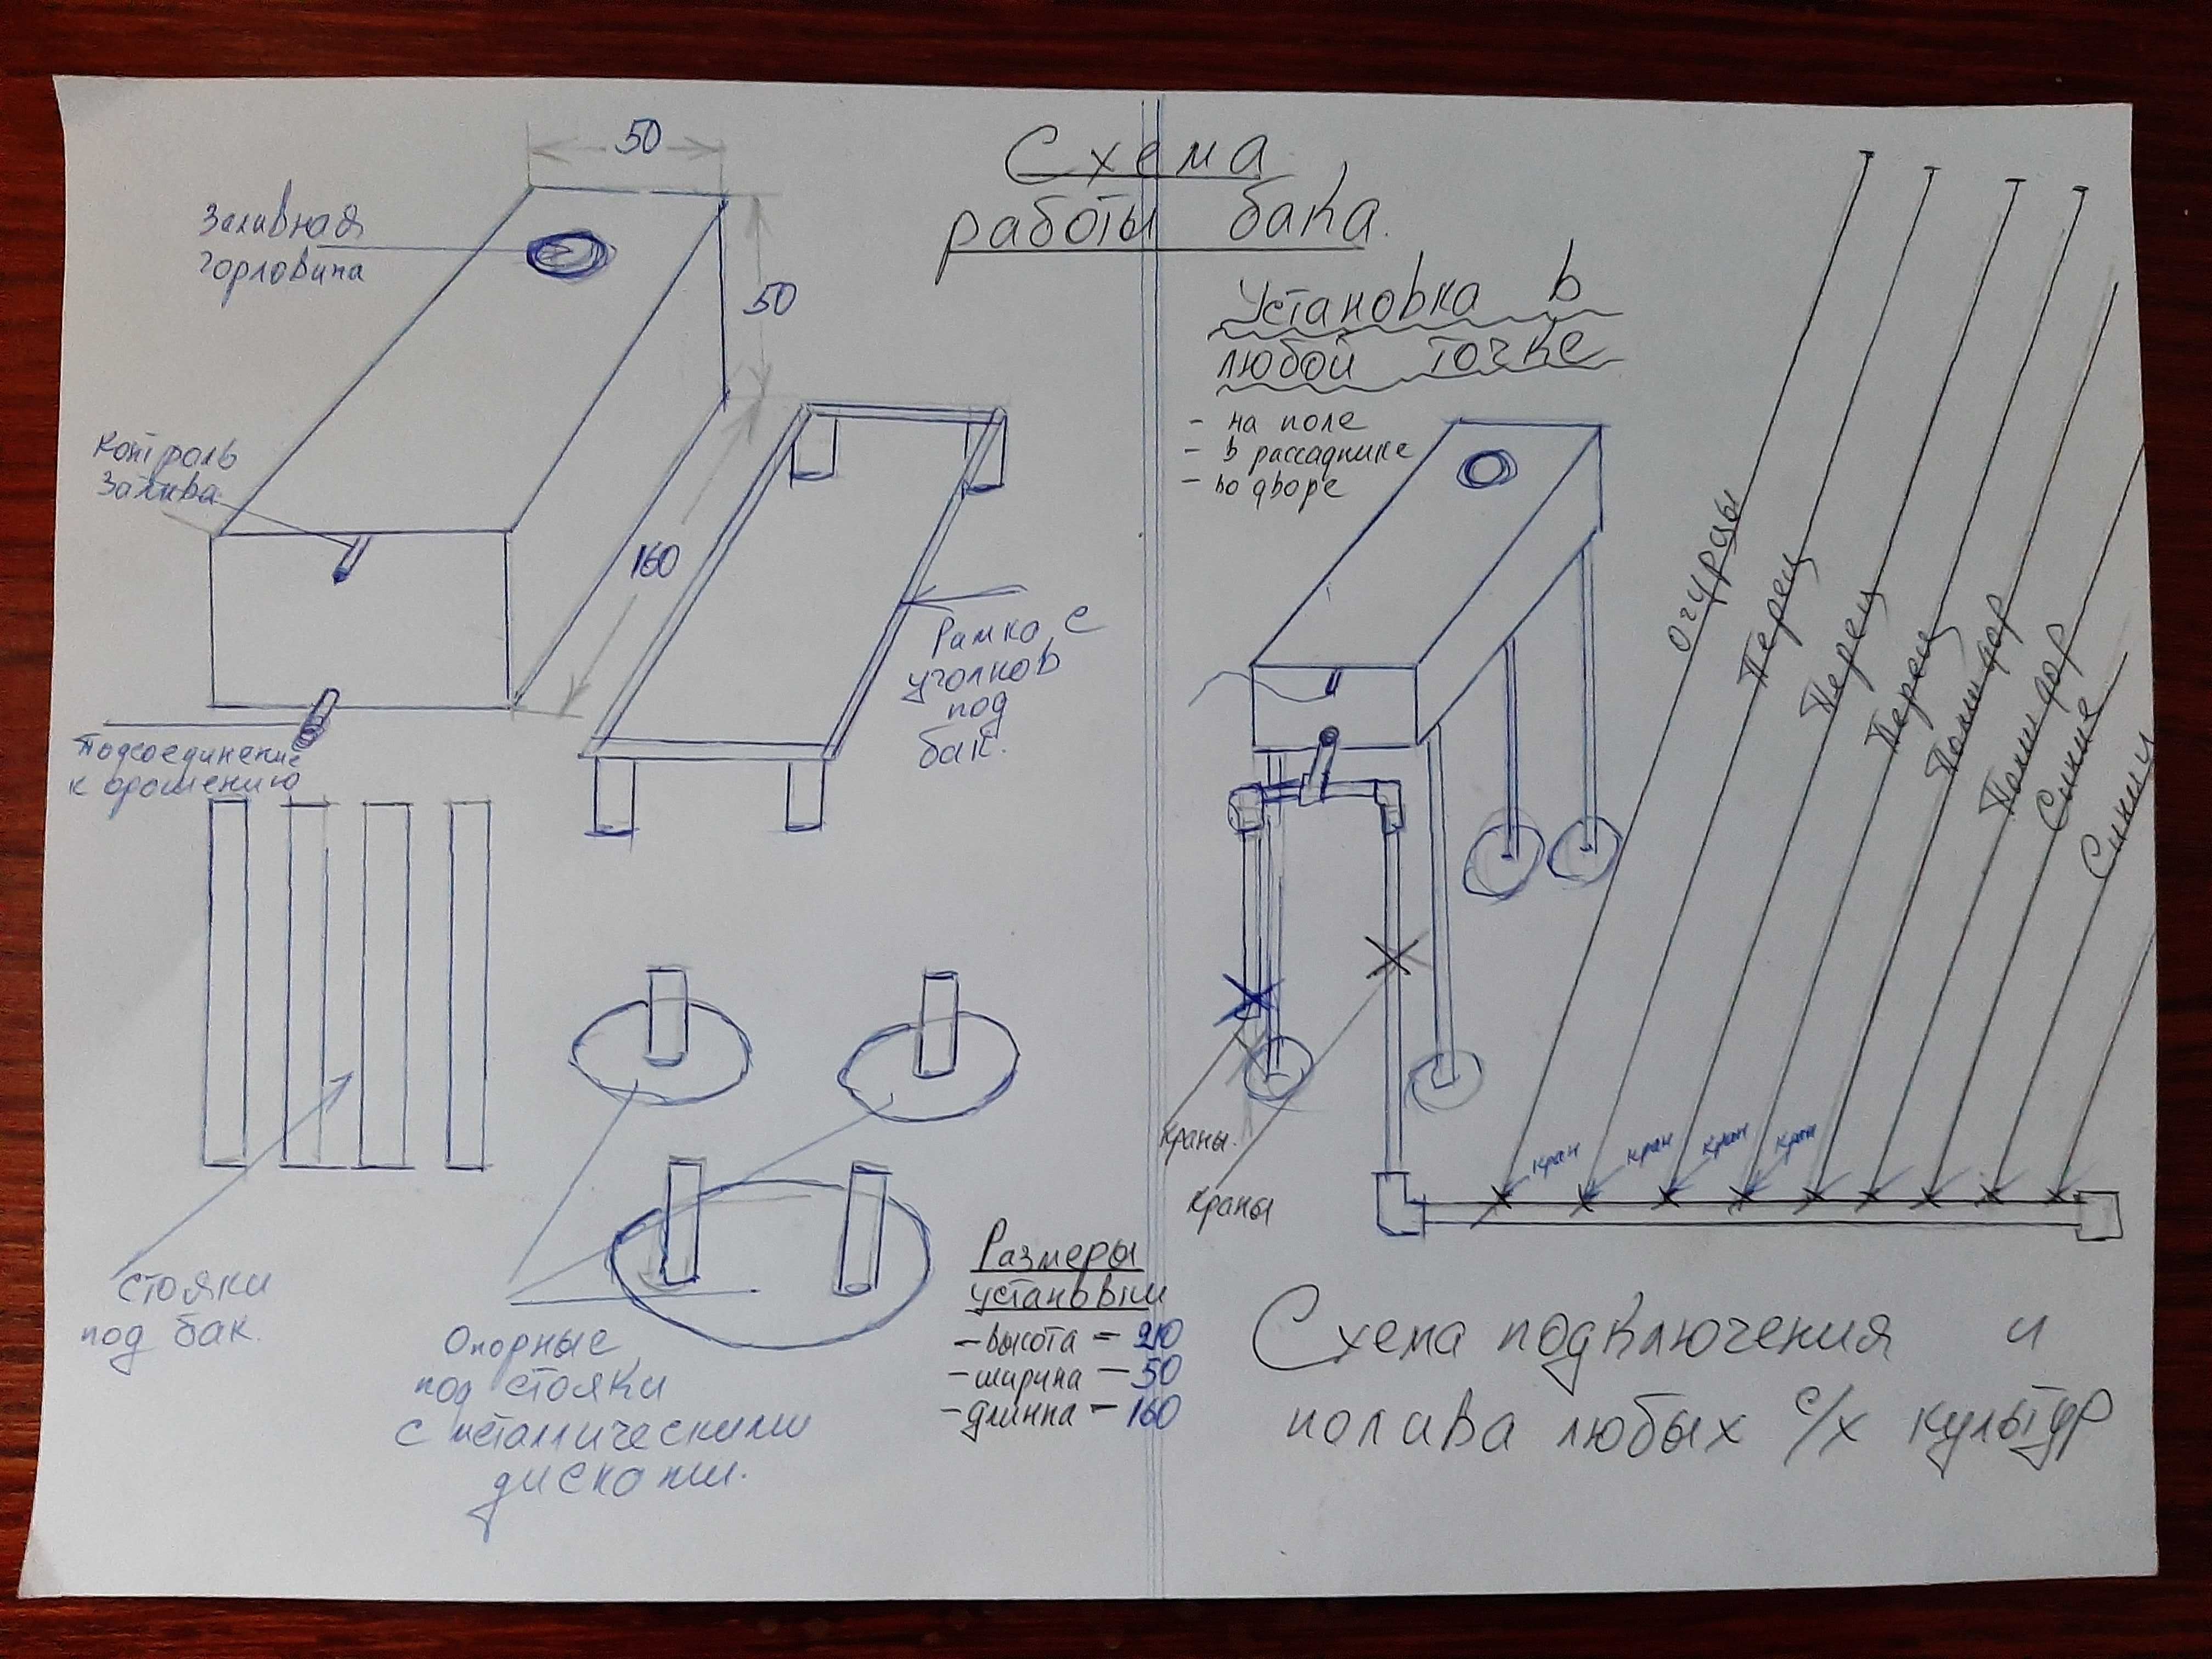 Схема
работы бака.
50
Заливная
горловина
50
Контроль
залива
160
Подсоединение
к орошению
Рамка с
уголков
под
бак.
Стояки
под бак.
Опорные
под стояки
с металлическими
дисками.
Размеры
установки
- высота - 210
- ширина - 50
- длинна - 160
Установка в
любой точке
- на поле
- в рассаднике
- во дворе
Огурцы
Перец
Перец
Перец
Помидор
Помидор
Синие
Синии
Краны.
Краны
кран
кран
кран
кран
Схема подключения и
полива любых с/х культур